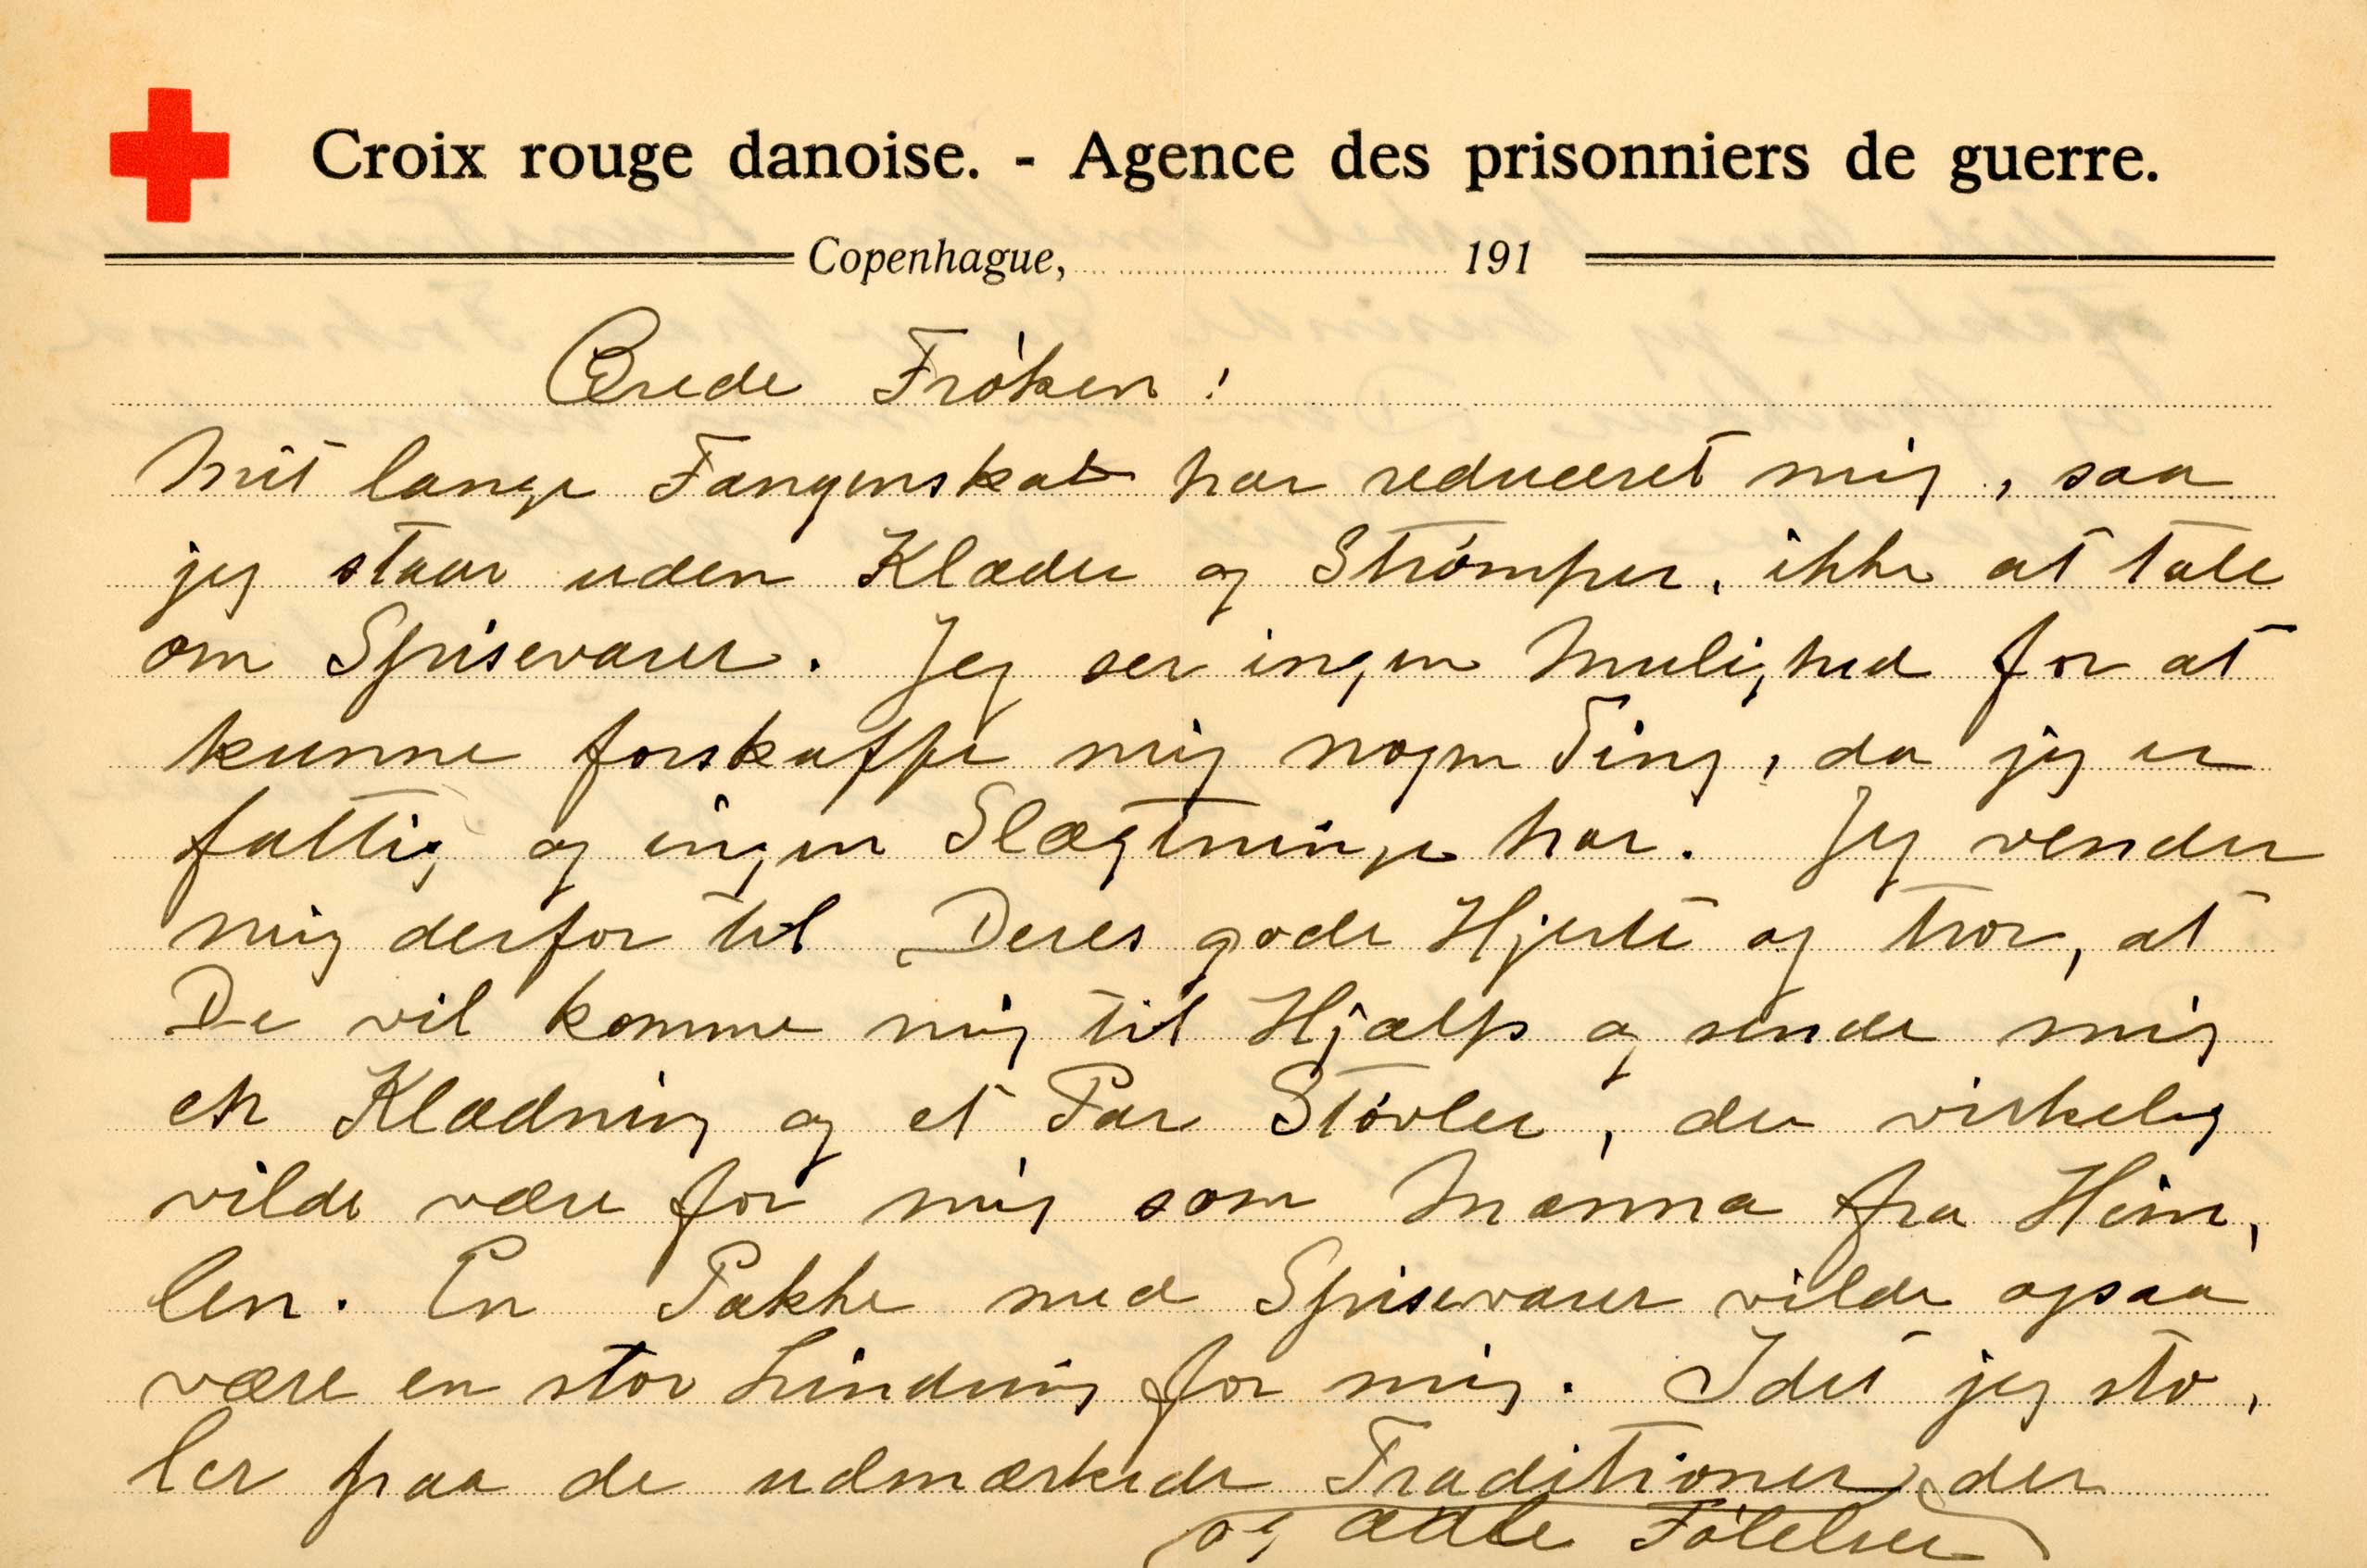 Croix rouge danoise. - Agence des prisonniers de guerre.
Copenhague, 191
Ærede Frøken!
Mit lange Fangenskab har reduceret mig, saa
jeg staar uden Klæder og Strømper, ikke at tale
om Spisevarer. Jeg ser ingen Mulighed for at
kunne forskaffe mig nogen Ting, da jeg er
fattig og ingen Slægtninge har. Jeg vender
mig derfor til Deres gode Hjerte og tror, at
De vil komme mig til Hjælp og sende mig
en Klædning og et Par Støvler, der virkelig
vilde være for mig som Manna fra Him,
len. En Pakke med Spisevarer vilde ogsaa
være en stor Lindring for mig. Idet jeg sto,
ler paa de udmærkede Traditioner der
og ædle Følelser